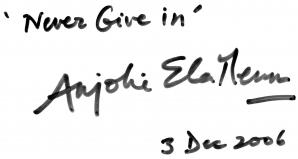 'Never Give in'
Anjolie Ela Menon
3 Dec 2006